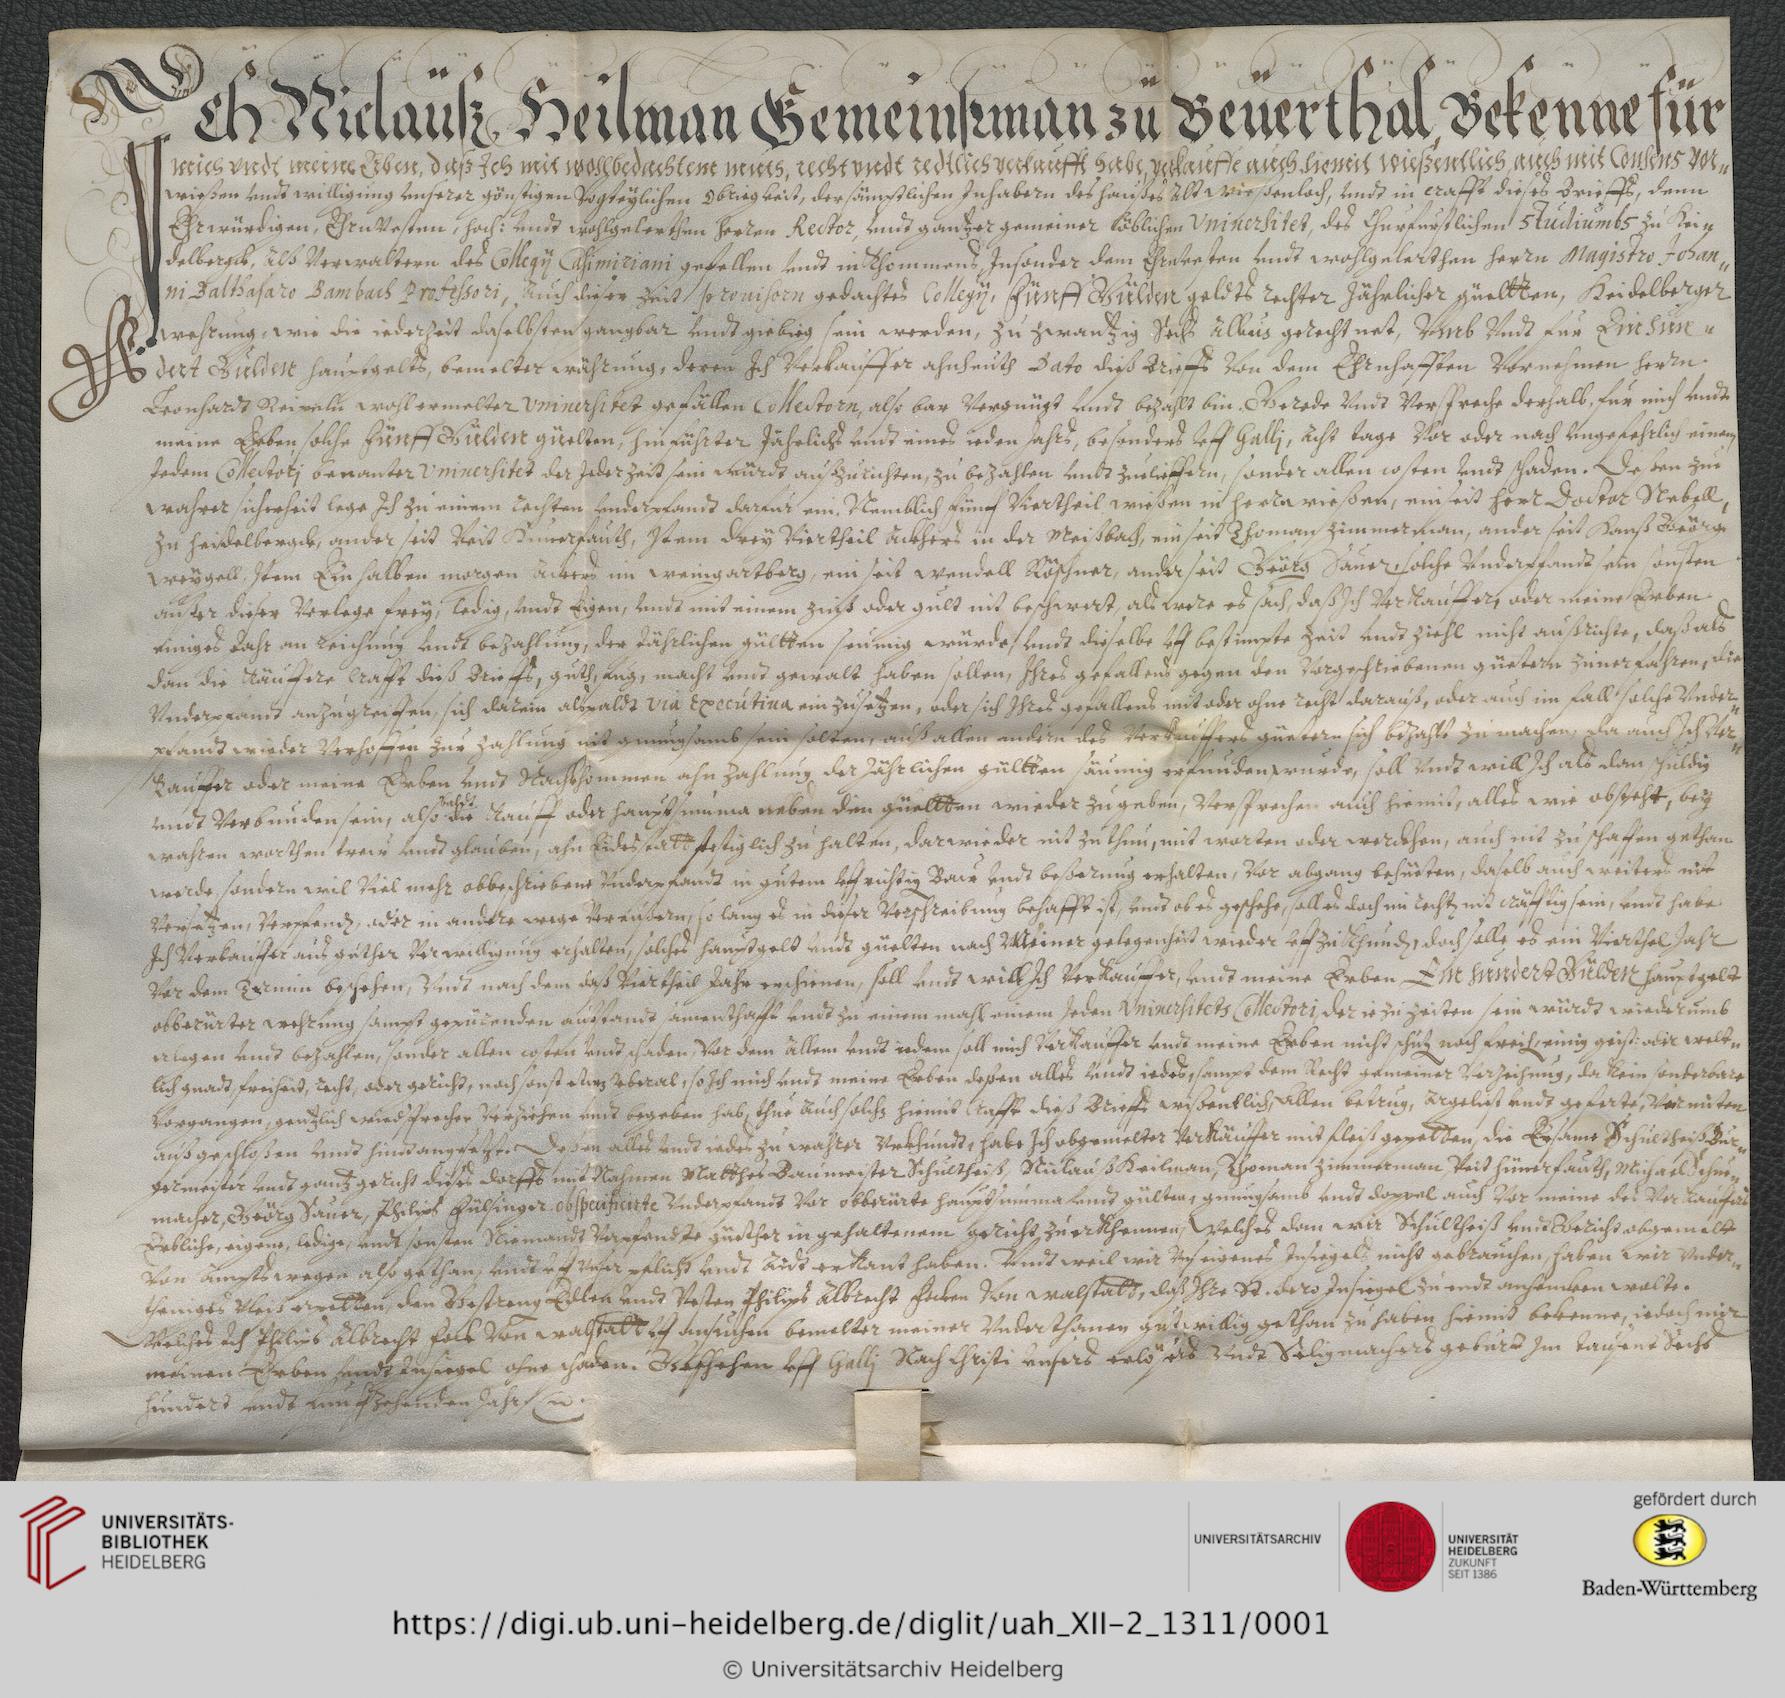 Ich Niclauß Heilman Gemeinßman zu Beüerthal, Bekenne für
mich vndt meine Erben, daß Ich mit wohlbedachtem muth, recht vndt redtlich verkaufft habe, verkauffe auch hiemit wießentlich, auch mit Consens vor-
wießen vndt willigung vnserer günstigen Vogteylichen Obrigkeit, der sämptlichen Inhabern des haußes Alt wießenloch, vndt in crafft dieses Brieffs, denn
Ehrwürdigen, Ehrnvesten, hoch: vndt wohlgelerthen herren Rector, vndt gantzer gemeiner löblichen Vniuersitet, des Churfurstlichen Studiumbs zu Hei„
delbergk, alß Verwaltern des Collegij Casimiriani gefellen vndt inkhommens, Insonder dem Ehrnvesten vndt wohlgelerthen herrn Magistro Johan„
ni Balthasaro Bambach Professori, auch dieser Zeit prouisorn gedachtes Collegij, Fünff Gülden geldts rechter Jährlicher güeltten, Heidelberger
wehrung, wie die iederzeit daselbsten gangbar vndt giebig sein werden, zu zwantzig Sechs albus gerechnet, Vmb vndt fur Ein hun„
dert Gulden hauptgelts, bemelter währung, deren Ich Verkauffer ahnheuth Dato dieß Brieffs von dem Ehrnhafften Vornehmen herrn
Leonhardt wohlermelter Vniuersitet gefällen Collectorn, also bar vergnügt vndt bezahlt bin. Gerede vndt Verspreche derhalb, fur mich vndt
meine Erben solche Fünff Gülden güelten, hinführter Jährlichs vndt eines ieden Jahrs, besonders vff Gallj, acht tage vor oder nach vngefehrlich einem
Jedem Collectorj benanter Vniuersitet der Jederzeit sein würdt außzurichten, zu bezahlen vndt zueliffern, sonder allen costen vndt schaden. Deßen zue
wahrer sicherheit lege Ich zu einem rechten vnderpfandt darfur ein, Nemblich fünff Viertheil wießen in herrn wießen, einseit herr Doctor Nebell,
zu heidelbergk, ander seit Veit Hünerfauth, Item drey Viertheil ackhers in der Meißbach, ein seit Thoman Zimmerman, ander seit Hanß Geörg
Weygell, Item Ein halben morgen ackers im weingartberg, ein seit wendell Röschner, ander seit Geörg Sauer, solche Vnderpfandt sein sonsten
außer dieser Verlege frey, ledig, vndt eigen, vndt mit einem zinß oder gult nit beschwert, als were es sach, daß Ich Verkauffer, oder meine Erben
einiges Jahr an reichung vndt bezahlung, der Jährlichen gültten seumig würde, vndt dieselbe vf bestimpte Zeit vndt ziehl nicht außrichte, daß als
dan die Käuffere Crafft dieß Brieffs, guth, fug, macht vndt gewalt haben sollen, Ihres gefallens gegen den Vorgeschriebenen güetern zuuerfahren, die
Vnderpfandt anzugreiffen, sich darein alspaldt via executiua einzusetzen, oder sich Ihres gefallens mit oder ohne recht darauß, oder auch im fall solche Vnder„
pfandt wieder Verhoffen zur zahlung nit gnungsamb sein solten, auß allen andern des Verkauffers güetern sich bezahlt zu machen, da auch Ich Ver„
Kauffer oder meine Erben vndt Nachkhommen ahn zahlung der Jährlichen gültten säumig erfunden wurde, soll vndt will Ich als dan schuldig
vndt Verbunden sein, also die Kauff oder hauptsumma neben den güeltten wieder zugeben, Versprechen auch hiemit, alles wie obsteht, bey
wahren worthen trew vndt glauben, ahn Eides statt stettiglich zu halten, darwieder nit zu thun, mit worten oder werckhen, auch nit zu schaffen gethan
werde, sondern wil viel mehr obbeschriebene Vnderpfandt in gutem vfrichtig Baw vndt beßerung erhalten, Vor abgang behueten, daselb auch weiters nit
Versetzen, Verpfendt, oder in andere wege Vereußern, so lang es in dieser Verschreibung behafft ist, vndt ob es geschehe, soll es doch im recht nit kräfftig sein, vndt habe
Ich Verkauffer aus guther Verwilligung erhalten, solches hauptgelt vndt güelten nach Meiner gelegenheit wieder vfzukhundt, doch solle es ein Vierthel Jahr
Vor dem Termin beschehen, Vndt nach dem daß Viertheil Jahr erschienen, soll vndt will Ich Verkauffer, vndt meine Erben Ein hundert Gülden hauptgelt
obberürter wehrung sampt gepürenden außstandt samenthafft vndt zu einem mahl einem Jeden Vniuersitets Collectori, der ie zu zeiten sein würdt wiederumb
erlegen vndt bezahlen, sonder allen costen vndt schaden, Vor dem allem vndt iedem soll mich Verkauffer vndt meine Erben nicht schütz noch freih, einig geist: oder welt„
lich gnadt, freiheit, recht, oder gericht, noch sonst etwz vberal, so Ich mich vndt meine Erben deßen alles vndt iedes, sampt dem Recht gemeiner Verzeihung, da kein sonderbare
vorgangen, gentzlich Verziehen vndt begeben hab, thue auch solchs hiemit Crafft dieß Brieffs wißentlich, allen betrug, argelist vndt geferte, Vermiten
außgeschloßen vndt hindangesetzt. Deßen alles vndt iedes zu wahrer Vrkhundt, habe Ich obgemelter Verkäuffer mit fleiß gepetten, die Ersame Schultheiß Bur„
germeister vndt gantz gericht dieses dorffs mit Nahmen Matthes Baumeister Schultheiß, Niclauß Heilman, Thoman Zimmerman Veit hünerfauth, Michael Schue„
macher, Geörg Sauer, Philips Fülsinger. obspecificirte Vnderpfandt Vor obberürte hauptsumma vndt gülten, gnungsamb vndt doppel auch Vor meine des Verkauffers
Erbliche, eigene, ledige, vndt sonsten Niemandt Verpfendte güether in gehaltenem gericht zu erkhennen, Welches dan wir Schultheiß vndt Gericht obgemelt
Von ampts wegen also gethan, vndt vf vnser pflicht vndt Aidt erkant haben. Vndt weil wir vns eigenes Insiegels nicht gebrauchen, haben wir vnder„
theniges fleiß erpetten, den Gestreng Edlen vndt Vesten Philips Albrecht Fecken Von walstatt, daß Ihre St. dero Insiegel zu endt anhencken wolte.
Welches Ich Philips Albrecht Von walstatt vf ansuchen bemelter meiner Vnderthanen gutwillig gethan zu haben hiemit bekenne, iedoch mir
meinen Erben vndt Insiegel ohne schaden. Geschehen vff Gallj Nach Christi vnsers erlösers Vndt Seligmachers geburt Im tausent Sechs
hundert vndt funfzehenden Jahr
UNIVERSITÄTS-
BIBLIOTHEK
HEIDELBERG
UNIVERSITÄTSARCHIV
UNIVERSITÄT
HEIDELBERG
ZUKUNFT
SEIT 1386
gefördert durch
Baden-Württemberg
https://digi.ub.uni-heidelberg.de/diglit/uah_XII-2_1311/0001
© Universitätsarchiv Heidelberg